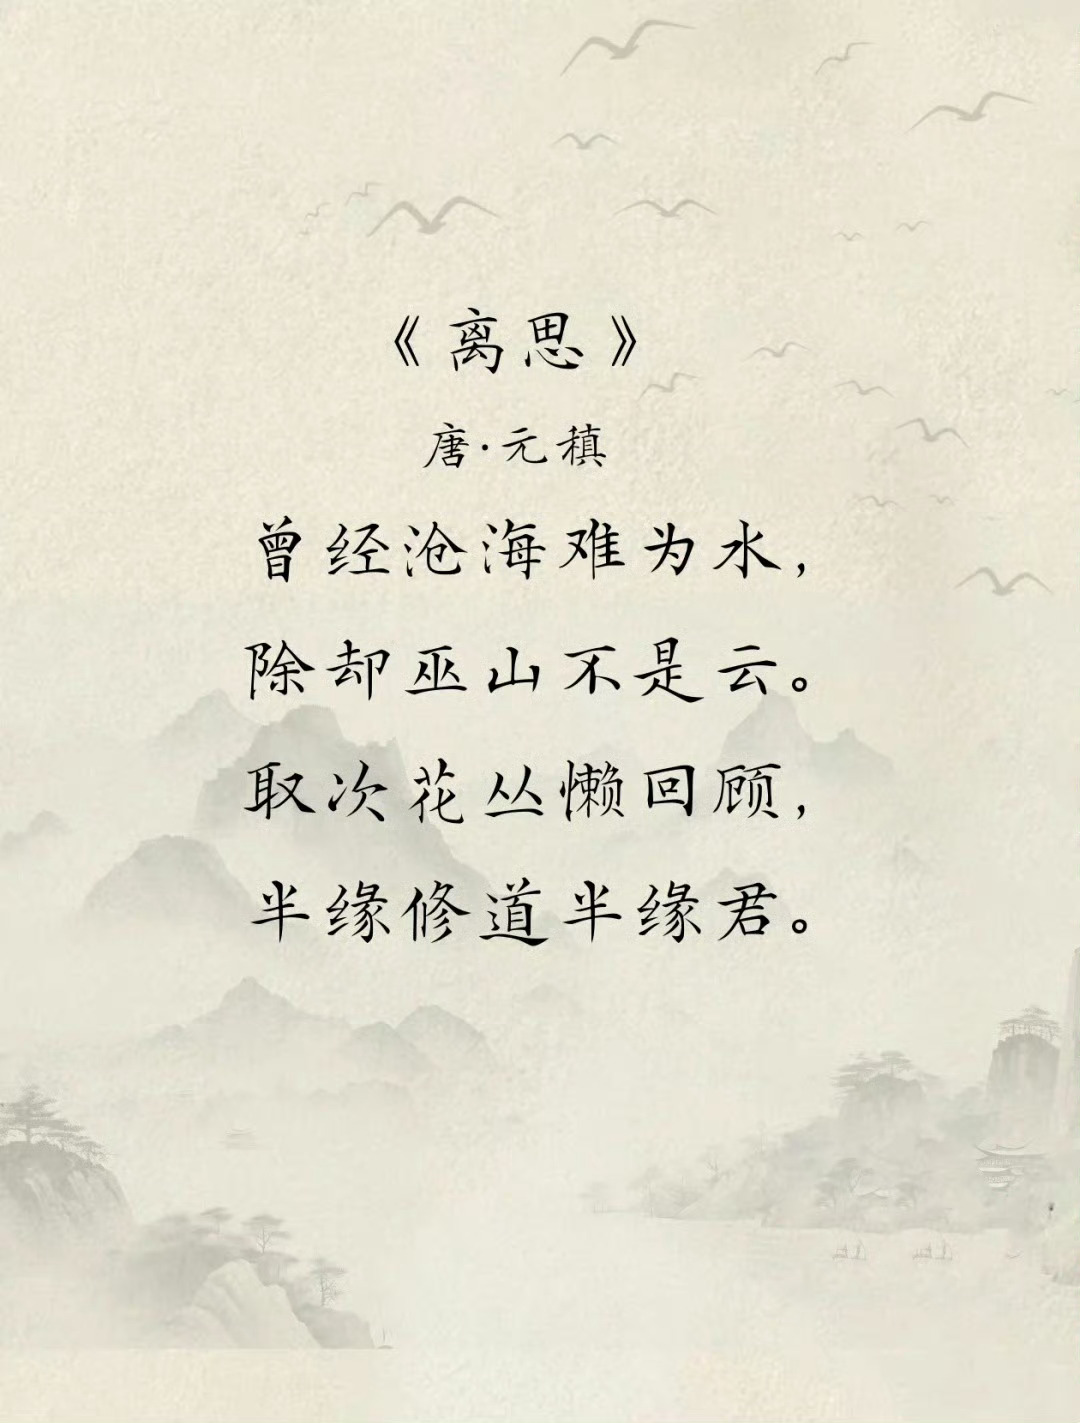 《离思》
唐·元稹
曾经沧海难为水，
除却巫山不是云。
取次花丛懒回顾，
半缘修道半缘君。